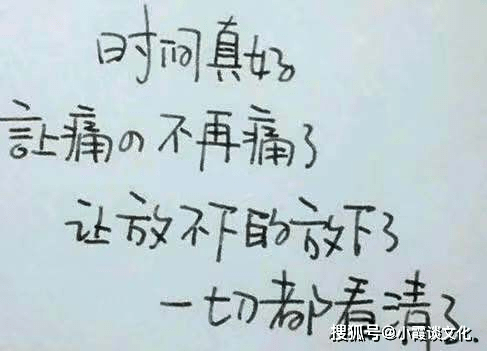 时间真好
让痛の不再痛了
让放不下的放下了
一切都看清了.
搜狐号@小霞谈文化